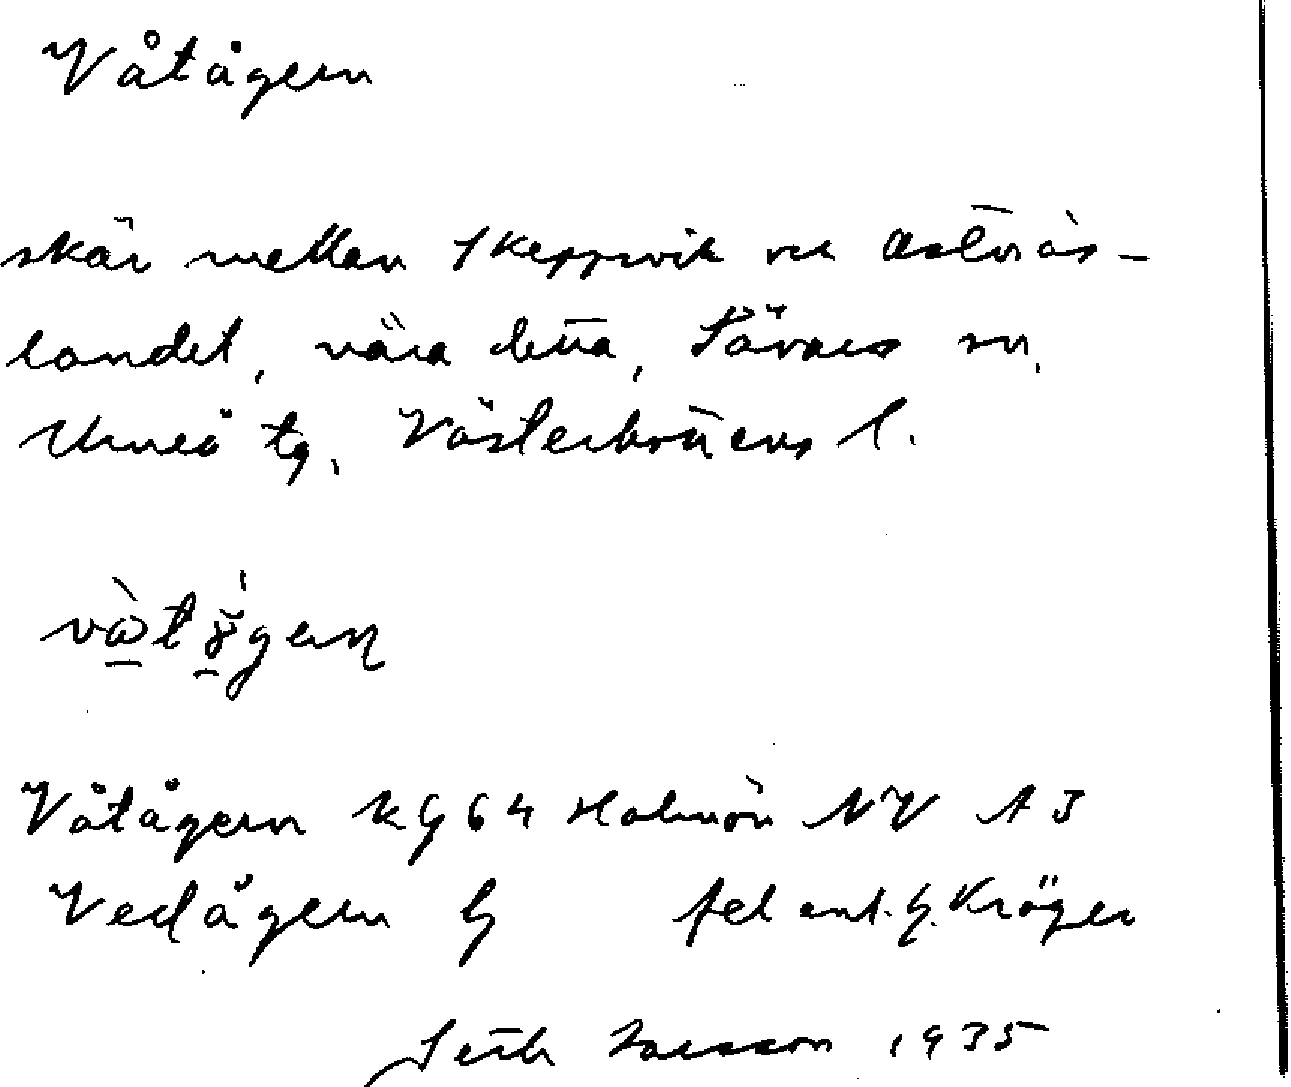 Våtågern
skär mellan Skeppsvik och Ostnäs-
landet, nära detta, Sävars sn,
Umeå tg, Västerbottens l.
Våtågern kg 64 Holmön NV A 3
Vedågern G fel enl. H. Kröger
Seth Larsson 1935